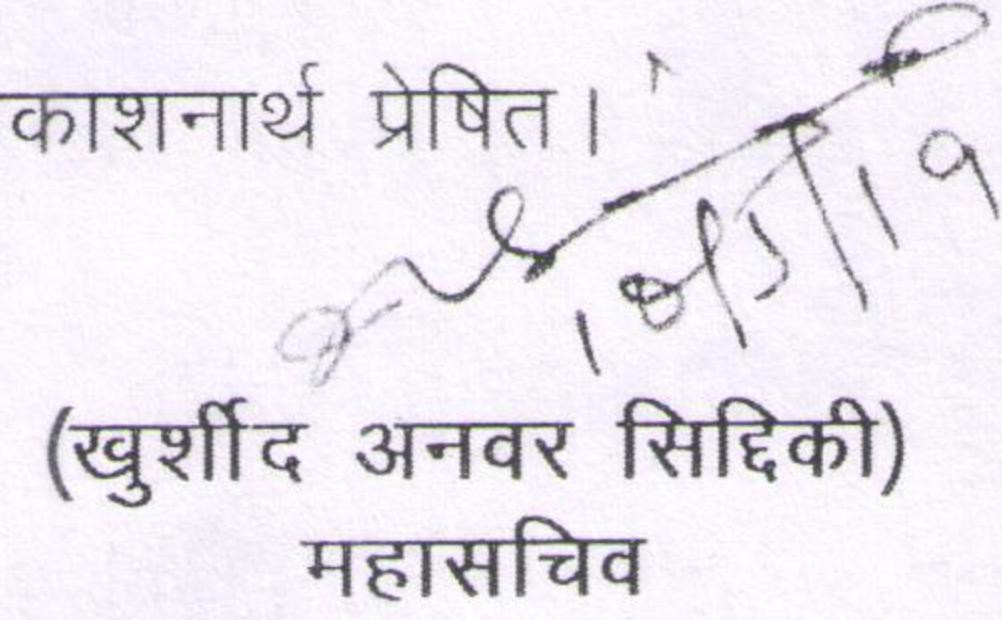 काशनार्थ प्रेषित।
(खुर्शीद अनवर सिद्दिकी)
महासचिव